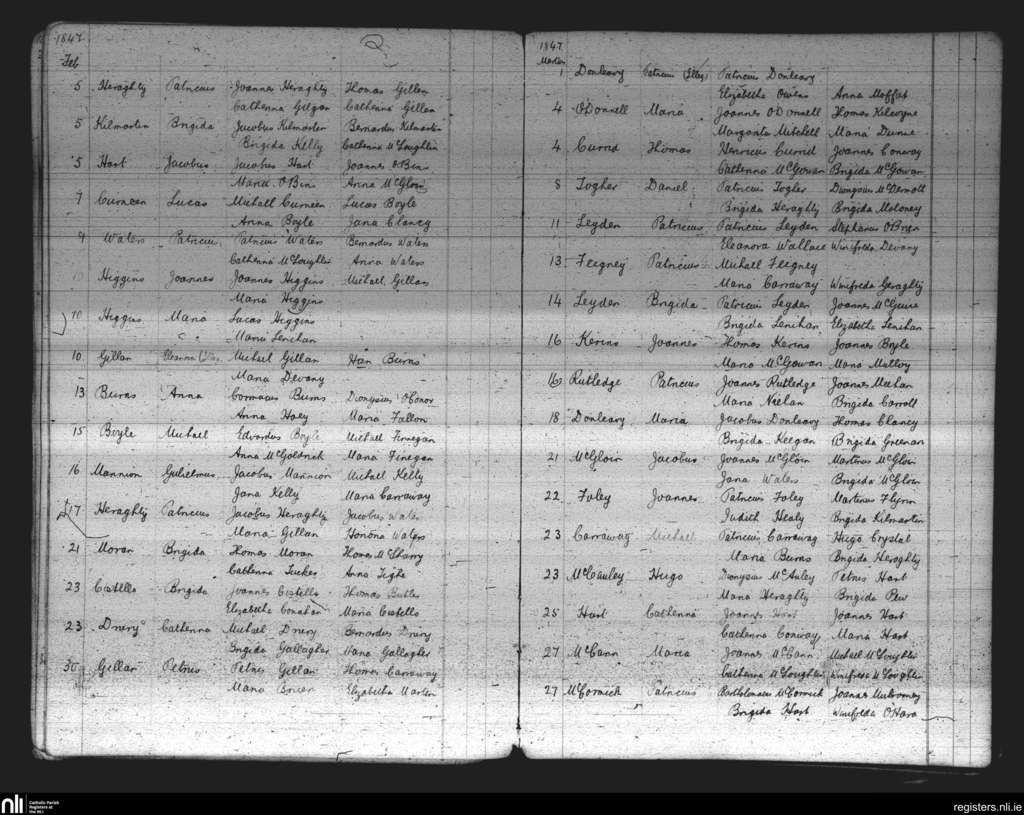 1847
Feb
5 Heraghty Patricius Joannes Heraghty Thomas Gillen
Catherina Gilgan Catherina Gillen
5 Kilmartin Brigida Jacobus Kilmarten Bernardus Kilmartin
Brigida Kelly Catherina McLoughlin
5 Hart Jacobus Jacobus Hart Joannes O'Bin
Maria O'Bin Anna McGloin
7 Curneen Lucas Michall Curneen Lucas Boyle
Anna Boyle Jana Clancy
9 Waters Patricius Patricius Waters Bernardus Waters
Catherina McLoughlin Anna Waters
10 Higgins Joannes Joannes Higgins Michall Gillan
Maria Higgins
10 Higgins Maria Lucas Higgins
Maria Lenihan
10 Gillan Eleanna Michael Gillan Han Burns
Maria Devany
13 Burns Anna Cormacus Burns Dionysius O'Conor
Anna Haey Maria Fallon
15 Boyle Michael Edvardus Boyle Michael Finnegan
Anna McGoldrick Maria Finegan
16 Mannion Gulielmus Jacobus Mannion Michall Kelly
Jana Kelly Maria Carraway
17 Heraghty Patricius Jacobus Heraghty Jacobus Waters
Maria Gillan Honona Waters
21 Moran Brigida Thomas Moran Thomas McSharry
Catherina Tucker Anna Tighe
23 Costello Brigida Joannes Costello Thomas Butler
Elizabetha Conahan Maria Costello
23 Drury Catherina Michael Drury Bernardus Drury
Brigida Gallagher Maria Gallagher
30 Gillan Petrus Petrus Gillan Thomas Carraway
Maria Brier Elizabetha Marten
1847
Martii
1 Donleavy Patricius Patricius Donleavy
Elizabetha Owens Anna Moffat
4 O'Donnell Maria Joannes O'Donnell Thomas Kilcoyne
Margarita Mitchell Maria Dunne
4 Currid Thomas Henricus Currid Joannes Conway
Catherina McGowan Brigida McGowan
8 Togher Daniel Patricius Togher Dionysius McDermott
Brigida Heraghty Brigida Moloney
11 Leyden Patricius Patricius Leyden Stephanus O'Brien
Eleanora Wallace Winifrida Devany
13 Feegney Patricius Michall Feegney
Maria Carraway Winifreda Geraghty
14 Leyden Brigida Patricius Leyden Joannes McGuire
Brigida Lenihan Elizabetha Lenihan
16 Kerins Joannes Thomas Kerins Joannes Boyle
Maria McGowan Maria Mulloy
16 Rutledge Patricius Joannes Rutledge Joannes Meehan
Maria Neelan Brigida Carroll
18 Donleavy Maria Jacobus Donleavy Thomas Clancy
Brigida Keegan Brigida Greenan
21 McGloin Jacobus Joannes McGloin Martinus McGloin
Jana Waters Brigida McGloin
22 Foley Joannes Patricius Foley Martinus Flynn
Judith Healy Brigida Kilmartin
23 Carraway Michael Patricius Carraway Hugo Crystal
Maria Burns Brigida Heraghty
23 McCauley Hugo Dionysius McAuley Petrus Hart
Maria Heraghty Brigida Pew
25 Hart Catherina Joannes Hart Joannes Hart
Catherina Conway Maria Hart
27 McCann Maria Joannes McCann Michael McLoughlin
Catherina McLoughlin Winifreda McLoughlin
27 McCormick Patricius Bartholomaeus McCormick Joannes Mulrooney
Brigida Hart Winifrida O'Hara
nli Catholic Parish
Registers at
the NLI
registers.nli.ie